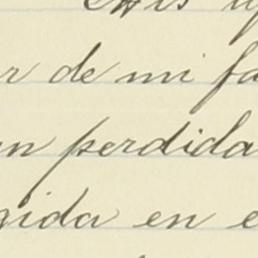 r de mi fa
n perdida
gida en e